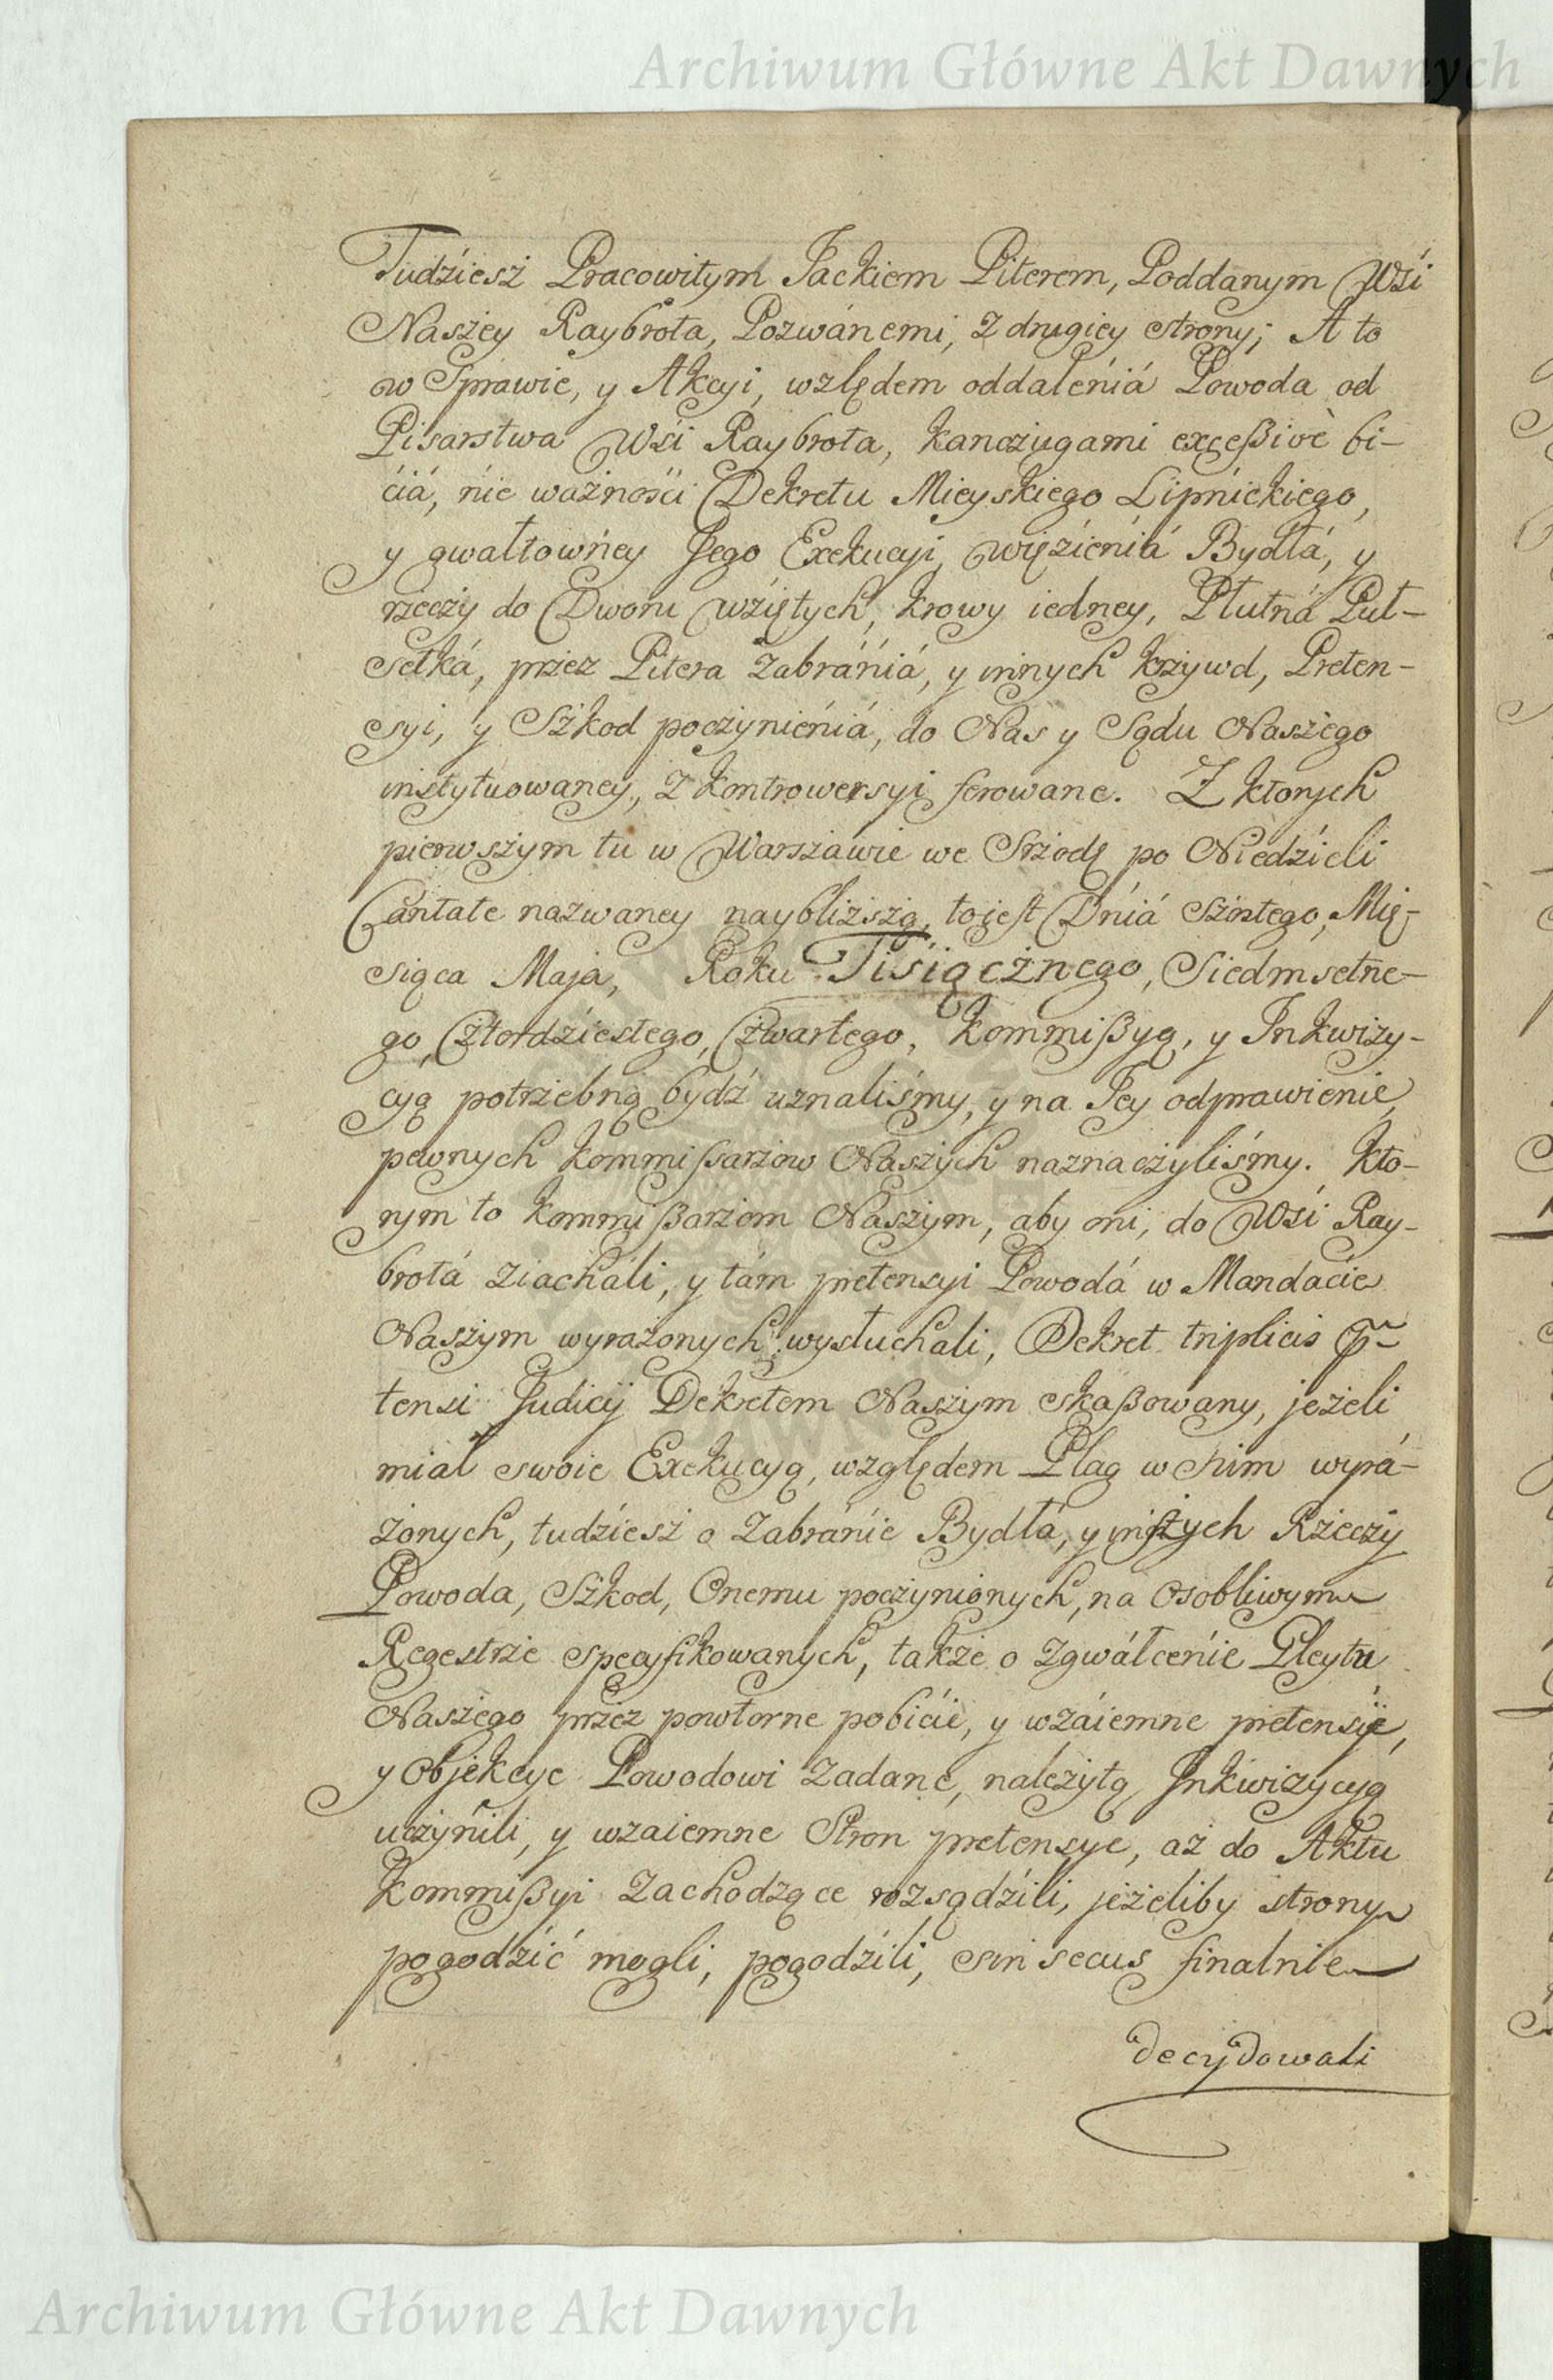 Archiwum Główne Akt Dawnych
Tudźiesż Pracowitym Jackiem Piterem, Poddanym Wśi
Nasżey Raybrota, Pozwánemi, z drugiey strony; A to
w Sprawie, y Akcyi, wzlędem oddaleńiá Powoda od
Pisarstwa Wśi Raybrota, kancżugami exceßivè bi-
ćiá, ńie ważnośći Dekretu Mieyskiego Lipńickiego,
y gwałtowńey Jego Exekucyi, więźieńiá Bydłá, y
rzecży do Dworu wźiętych, krowy iedney, Płutná Puł-
setká, przez Pitera zabráńiá, y innych krżywd, Preten-
syi, y Szkod pocżynieńiá, do Nas y Sądu Nasżego
instytuowaney, z kontrowersyi ferowane. Z ktorych
pierwszym tu w Warsżawie we Srżodę po Niedźieli
Cantate nazwaney naybliżsżą, to iest Dńiá szostego, Mie-
siąca Maja, Roku Tisiącżnego, Siedmsetne-
go, Cżterdźiestego, Cżwartego, kommißyą, y Inkwizy-
cyą potrżebną bydź uznaliśmy, y na Jey odprawienie
pewnych kommißarżow Nasżych naznacżyliśmy. Kto-
rym to kommißarżom Nasżym, aby oni, do Wśi Ray-
brotá ziacháli, y tám pretensyi Powodá w Mandaćie
Nasżym wyrażonych wysłuchali, Dekret triplicis p~
tensi Judicij Dekretem Nasżym skaßowany, jeżeli
miał swoie Exekucyą, względem Plag w nim wyrá-
żonych, tudźiesż o zabránie Bydłá, y inszych Rżecży
Powoda, Szkod, Onemu pocżynionych, na osobliwym
Regestrże specyfikowanych, także o zgwáłceńie Gleytu
Nasżego przez powtorne pobićie, y wzáiemne pretensÿe,
y objekcye Powodowi zadane, należytą Inkwizycyą
ucżyńili, y wzaiemne Stron pretensye, aż do Aktu
kommißyi zachodzące rozsądźili, jeżeliby strony
pogodźić mogli, pogodźili, sin secus finalnie
decydowali
Archiwum Główne Akt Dawnych